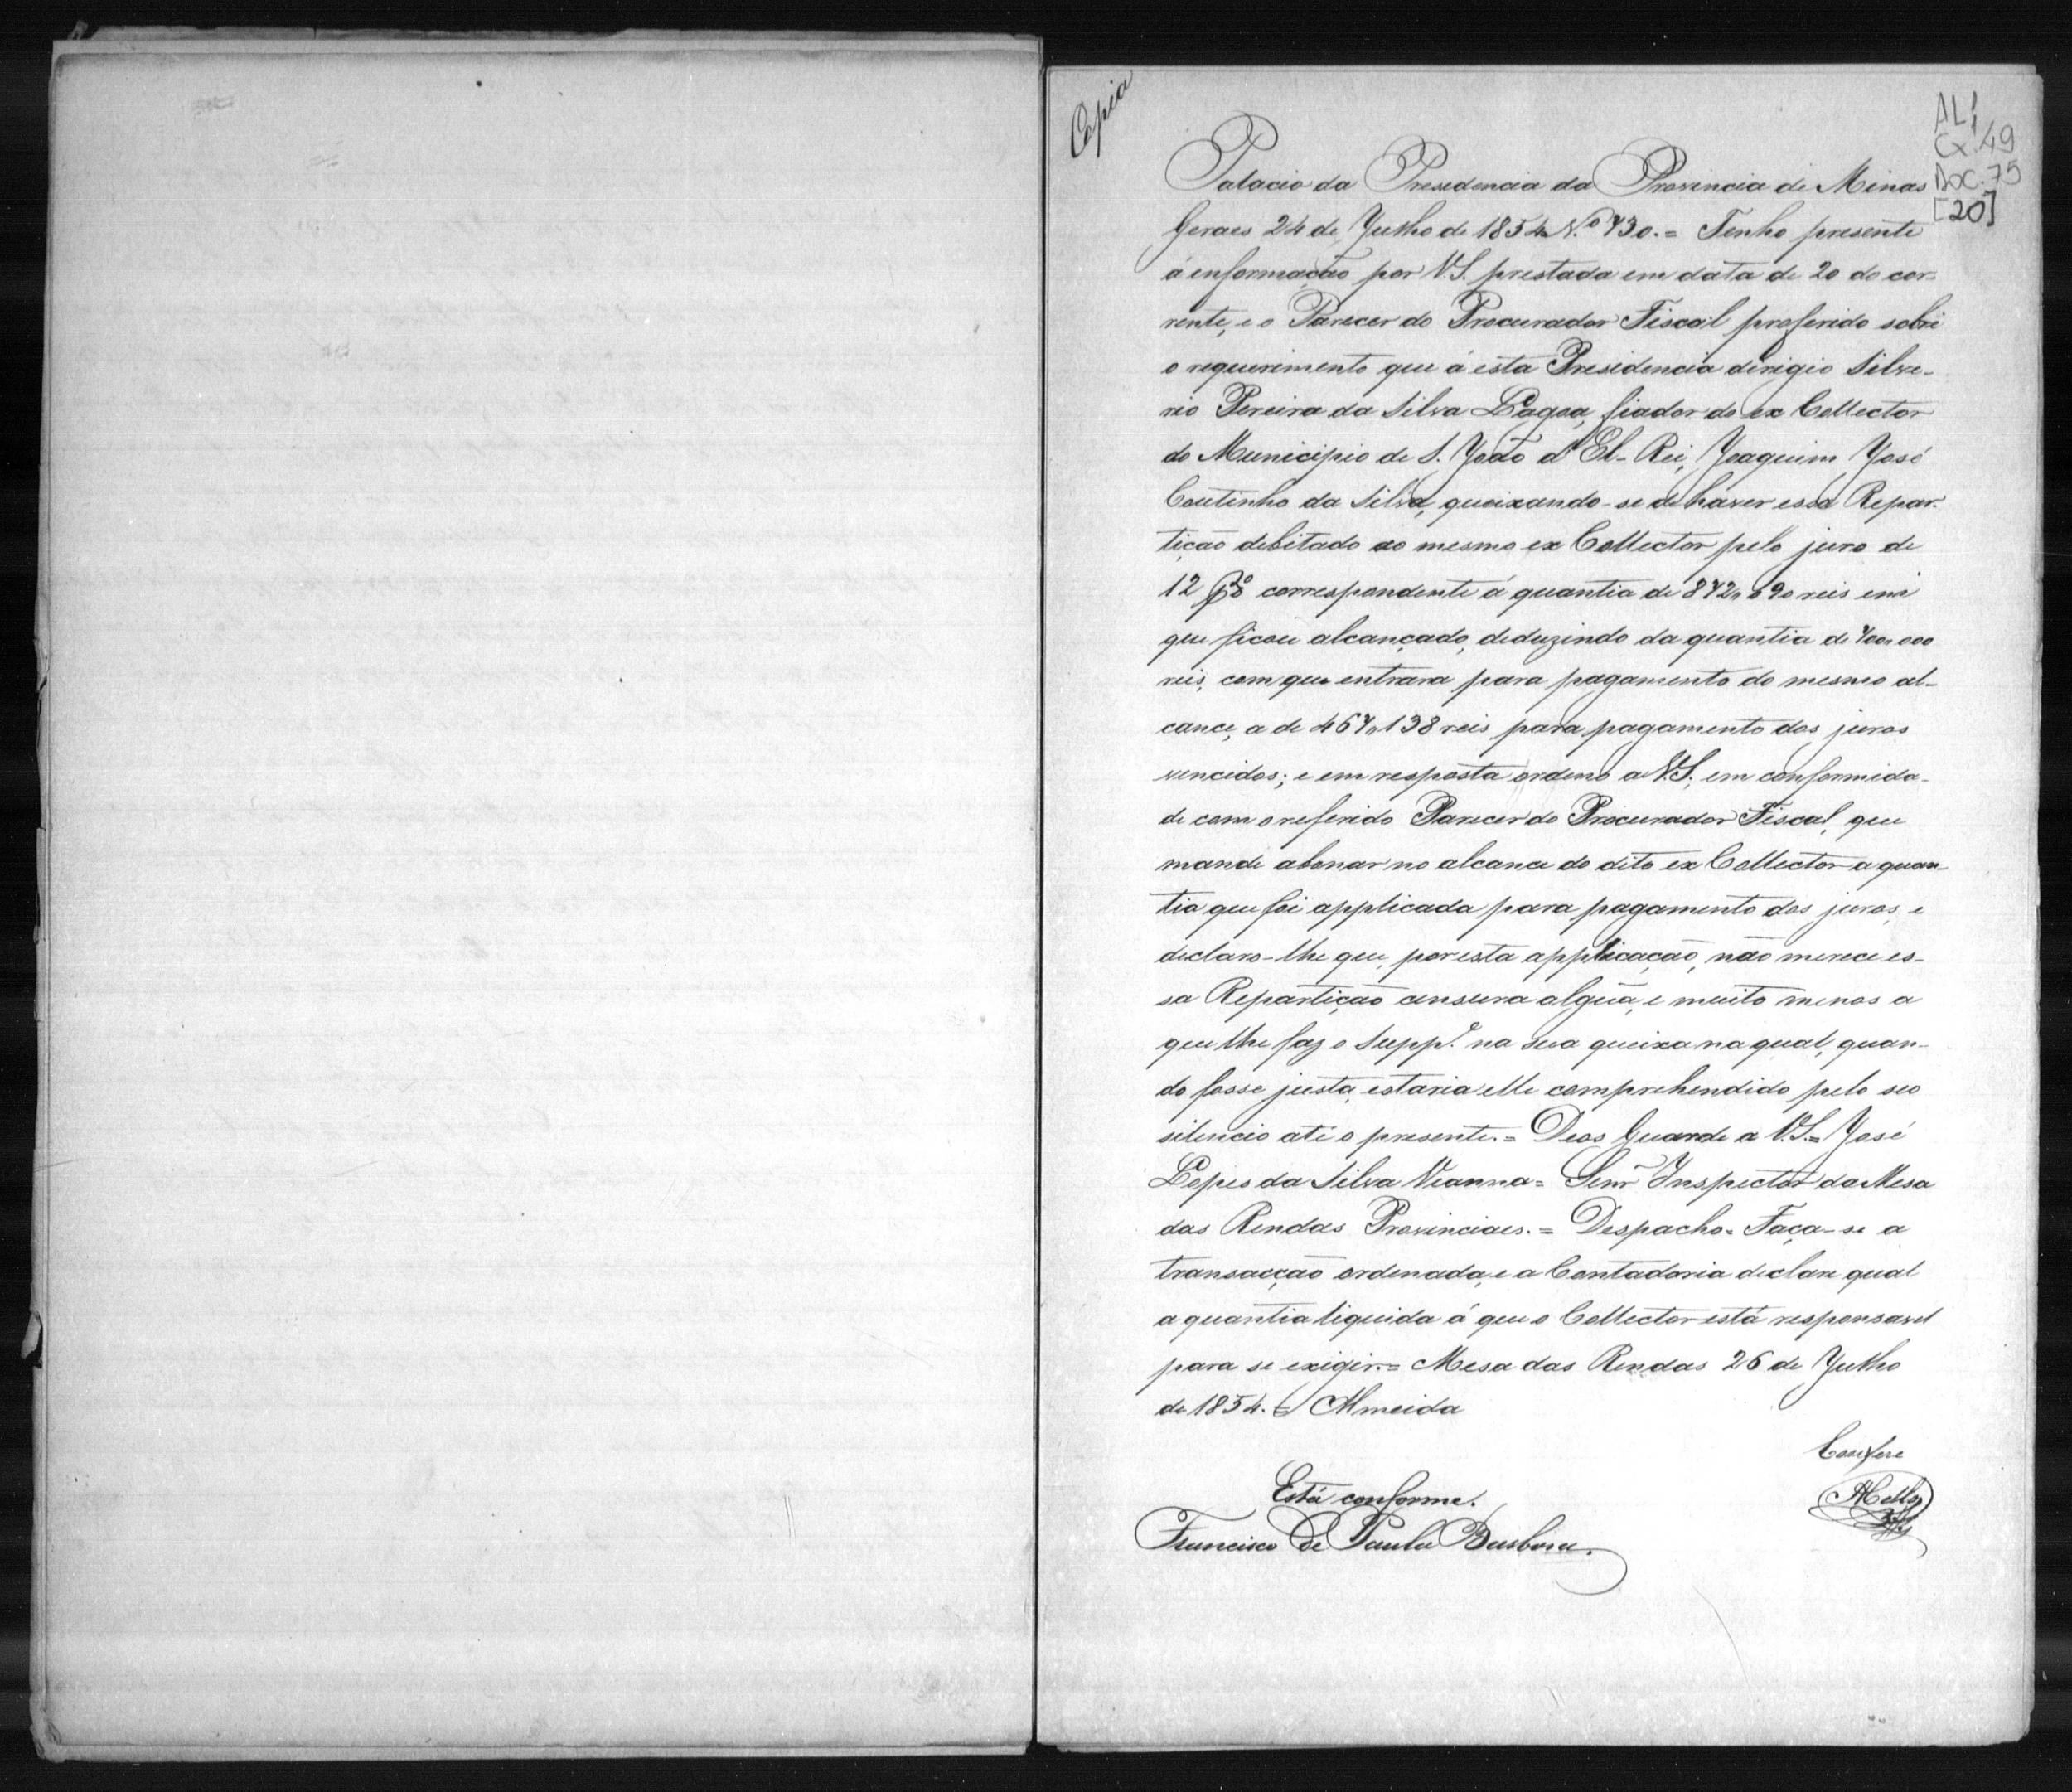 Copia
AL1
Cx.49
Doc.75
[20]
Palacio da Presidencia da Provincia de Minas
Geraes 24 de Julho de 1854. N.º 730. = Tenho presente
á informação por V.S. prestada em data de 20 do cor-
rente, e o Parecer do Procurador Fiscal proferido sobre
o requerimento que á esta Presidencia dirigio Silve-
rio Pereira da Silva Lagoa, fiador do ex Collector
do Municipio de S. João d'El-Rei, Joaquim José
Coutinho da Silva, queixando-se de haver essa Repar-
tição debitado ao mesmo ex Collector pelo juro de
12 p% correspondente á quantia de 872,090 reis em
que ficou alcançado, deduzindo da quantia de 700,000
reis, com que entrara para pagamento do mesmo al-
cance, a de 467,138 reis para pagamento dos juros
vencidos; e em resposta ordeno a V.S., em conformida-
de com o referido Parecer do Procurador Fiscal, que
mande abonar no alcance do dito ex Collector a quan-
tia que foi applicada para pagamento dos juros, e
declaro-lhe que, por esta applicação, não merece es-
sa Repartição censura algũa, e muito menos a
que lhe faz o Supp.e na sua queixa na qual, quan-
do fosse justa, estaria elle comprehendido pelo seo
silencio até o presente. = Deos Guarde a V.S. = José
Lopes da Silva Vianna = Senr Inspector da Mesa
das Rendas Provinciaes. = Despacho. Faça-se a
transacção ordenada, e a Contadoria declare qual
a quantia liquida á que o Collector está responsavel
para se exigir. = Mesa das Rendas 26 de Julho
de 1854. = Almeida
Confere
Mello
Está conforme.
Francisco de Paula Barbosa.